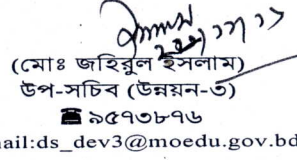 (মোঃ জহিরুল ইসলাম)
উপ-সচিব (উন্নয়ন-৩)
☎ ৯৫৭৩৮৭৬
ail:ds_dev3@moedu.gov.bd